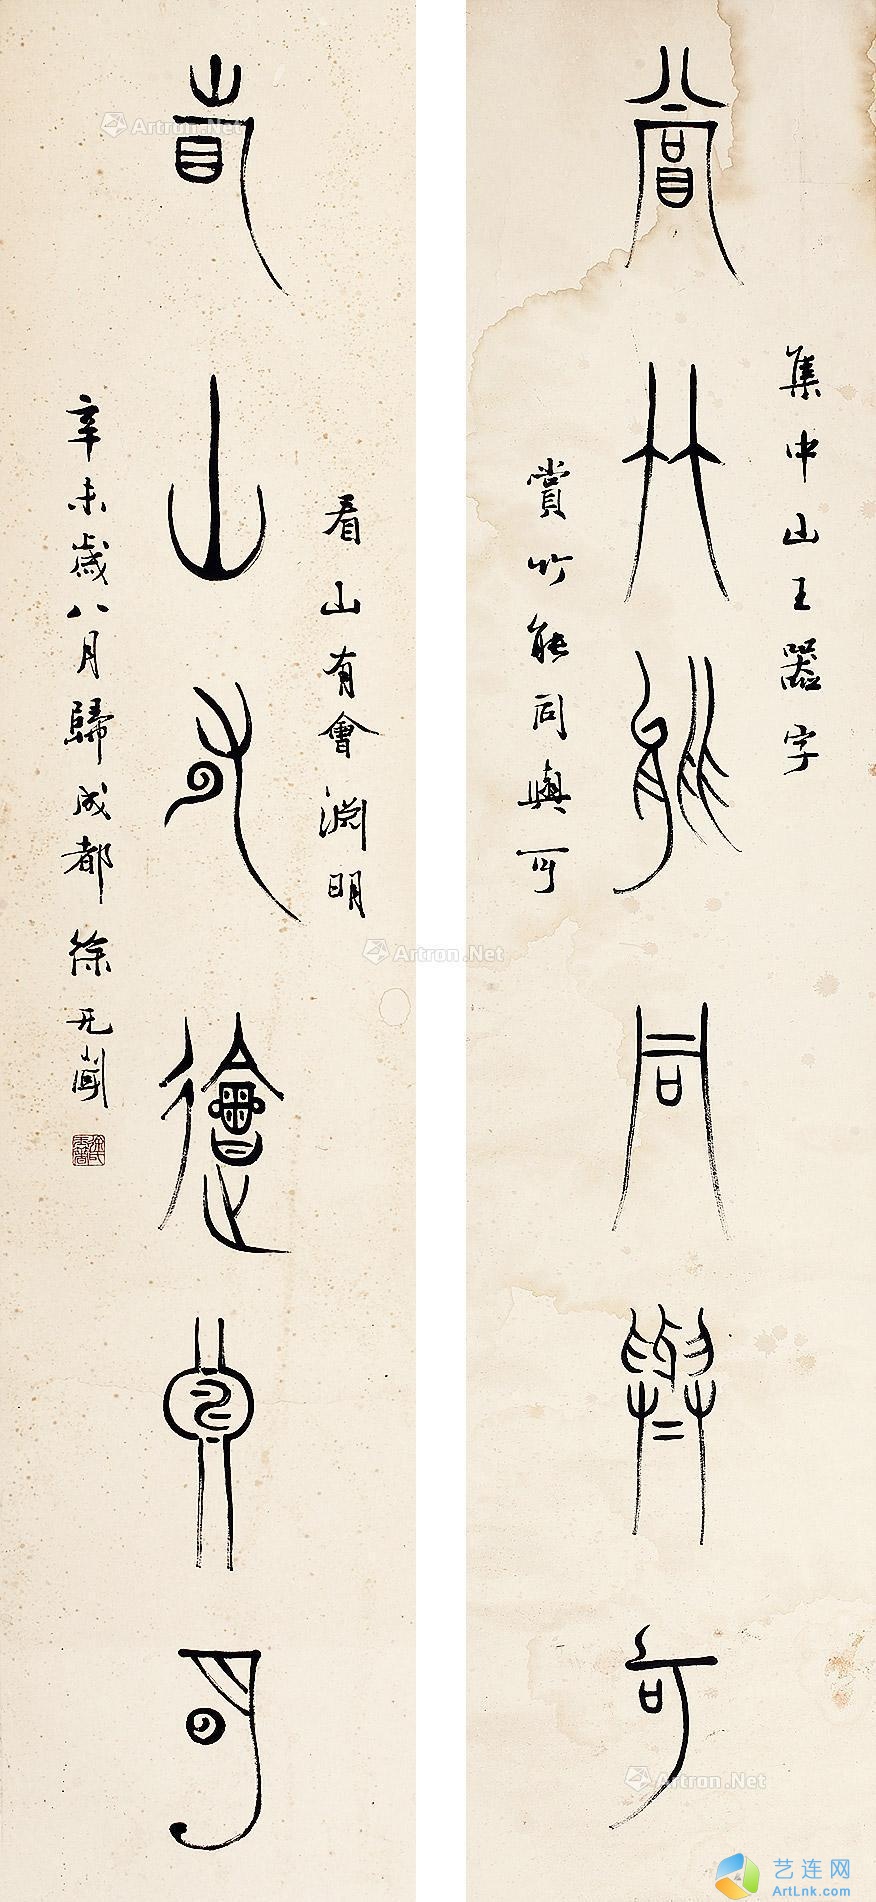 賞竹能同與可
集中山王器字
賞竹能同與可
看山有會淵明
看山有會淵明
辛未歲八月歸成都徐无聞
Artron.Net
Artron.Net
Artron.Net
艺连网
ArtLnk.com